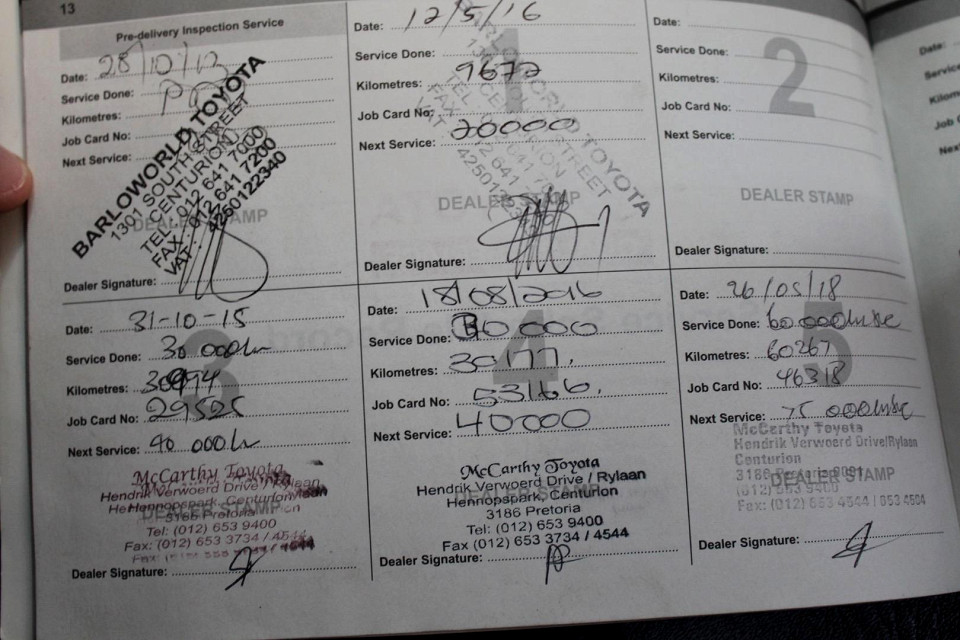 13
Pre-delivery Inspection Service
Date: 28/10/13
Service Done: PD
Kilometres:
Job Card No:
Next Service:
BARLOWORLD TOYOTA
1301 SOUTH STREET
CENTURION
TEL: 012 641 7000
FAX: 012 641 7200
VAT: 4250122340
DEALER STAMP
Dealer Signature:
Date: 12/5/16
Service Done:
Kilometres: 9672
Job Card No:
Next Service: 20000
1
TOYOTA
STREET
DEALER STAMP
Dealer Signature:
Date:
Service Done:
Kilometres:
Job Card No:
Next Service:
2
DEALER STAMP
Dealer Signature:
Date: 31-10-15
Service Done: 30 000
Kilometres:
Job Card No: 29525
Next Service: 40 000
3
McCarthy Toyota
Hendrik Verwoerd Drive / Rylaan
Hennopspark, Centurion
3186 Pretoria
Tel: (012) 653 9400
Fax: (012) 653 3734 / 4544
DEALER STAMP
Dealer Signature:
Date: 18/08/2016
Service Done: 30 000
Kilometres: 30177.
Job Card No: 53166.
Next Service: 40000
4
McCarthy Toyota
Hendrik Verwoerd Drive / Rylaan
Hennopspark, Centurion
3186 Pretoria
Tel: (012) 653 9400
Fax (012) 653 3734 / 4544
DEALER STAMP
Dealer Signature:
Date: 26/05/18
Service Done: 60 000
Kilometres: 60267
Job Card No: 46318
Next Service: 75 000
5
McCarthy Toyota
Hendrik Verwoerd Drive/Rylaan
Centurion
3186 Pretoria 0001
(012) 653 9400
Fax: (012) 653 4544 / 653 4504
DEALER STAMP
Dealer Signature:
Date: